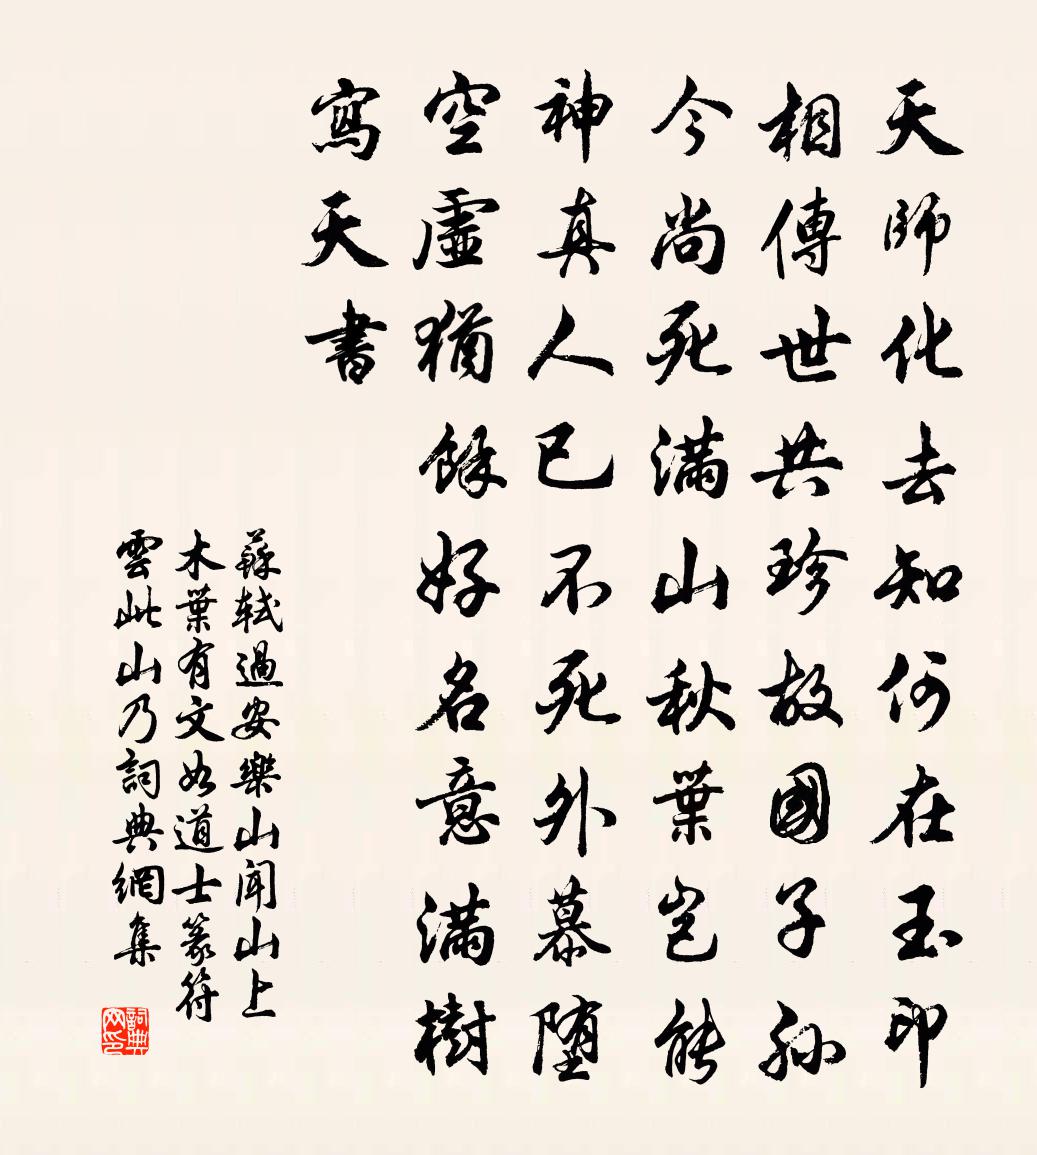 天師化去知何在玉印
相傳世共珍故國子孫
今尚死滿山秋葉豈能
神真人已不死外慕墮
空虛猶餘好名意滿樹
寫天書
蘇軾過安樂山聞山上
木葉有文如道士篆符
雲此山乃詞典網集
詞典
网印